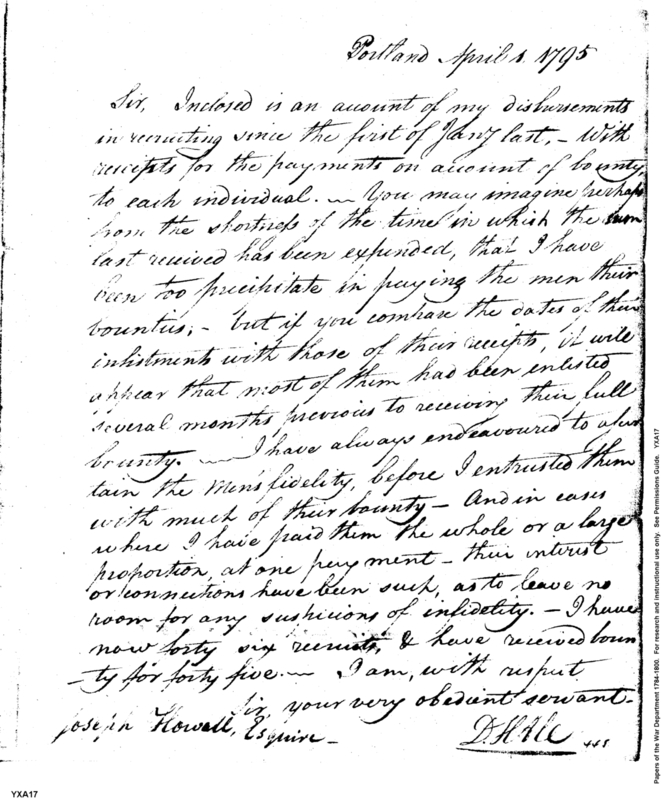 Portland April 1. 1795
Sir, Inclosed is an account of my disbursements
in recruiting since the first of Jany last, - With
receipts for the payments on account of bounty,
to each individual. — You may imagine perhaps
from the shortness of the time in which the sum
last received has been expended, that I have
been too precipitate in paying the men their
bounties; - but if you compare the dates of their
inlistments with those of their receipts, it will
appear that most of them had been enlisted
several months previous to receiving their full
bounty. — I have always endeavoured to ascer
tain the Men's fidelity, before I entrusted them
with much of their bounty - And in cases
where I have paid them the whole or a large
proportion, at one payment - their interest
or connections have been such, as to leave no
room for any suspicions of infidelity. - I have
now forty six recruits, & have received boun
-ty for forty five. — I am, with respect
Sir, your very obedient servant-
Joseph Howell, Esquire -
YXA17
Papers of the War Department 1784-1800. For research and instructional use only. See Permissions Guide. YXA17